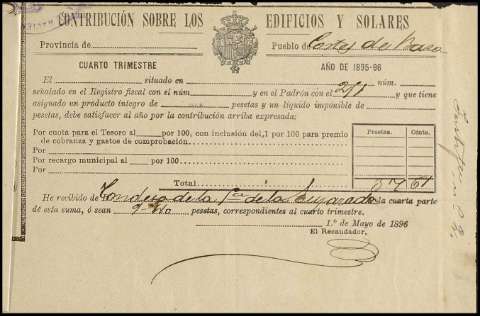 CONTRIBUCIÓN SOBRE LOS EDIFICIOS Y SOLARES
Provincia de Pueblo de Cortes de Baza
CUARTO TRIMESTRE AÑO DE 1895-96
El situado en núm.
señalado en el Registro fiscal con el núm. y en el Padrón con el 271 y que tiene
asignado un producto íntegro de pesetas y un líquido imponible de
pesetas, debe satisfacer al año por la contribución arriba expresada:
Pesetas. Cénts.
Por cuota para el Tesoro al por 100, con inclusión del 1 por 100 para premio
de cobranza y gastos de comprobación.
Por
Por recargo municipal al por 100
Total 8 7 61
He recibido de la cuarta parte
de esta suma, ó sean pesetas, correspondientes al cuarto trimestre.
1.º de Mayo de 1896
El Recaudador.